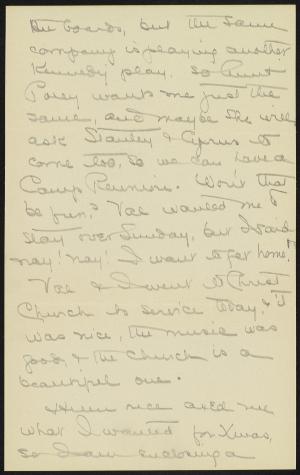 the boards, but the same
company is playing another
Kennedy play. So Aunt
Posey wants me just the
same, and maybe she will
ask Stanley & Cyrus to
come too, so we can have a
Camp Reunion. Won't that
be fun? Vae wanted me to
stay over Sunday, but I said
nay! nay! I want to get home!
Vae & I went to Christ
Church to service today, & it
was nice, the music was
good, & the Church is a
beautiful one.
Helen Rice asked me
what I wanted for Xmas,
so I am enclosing a